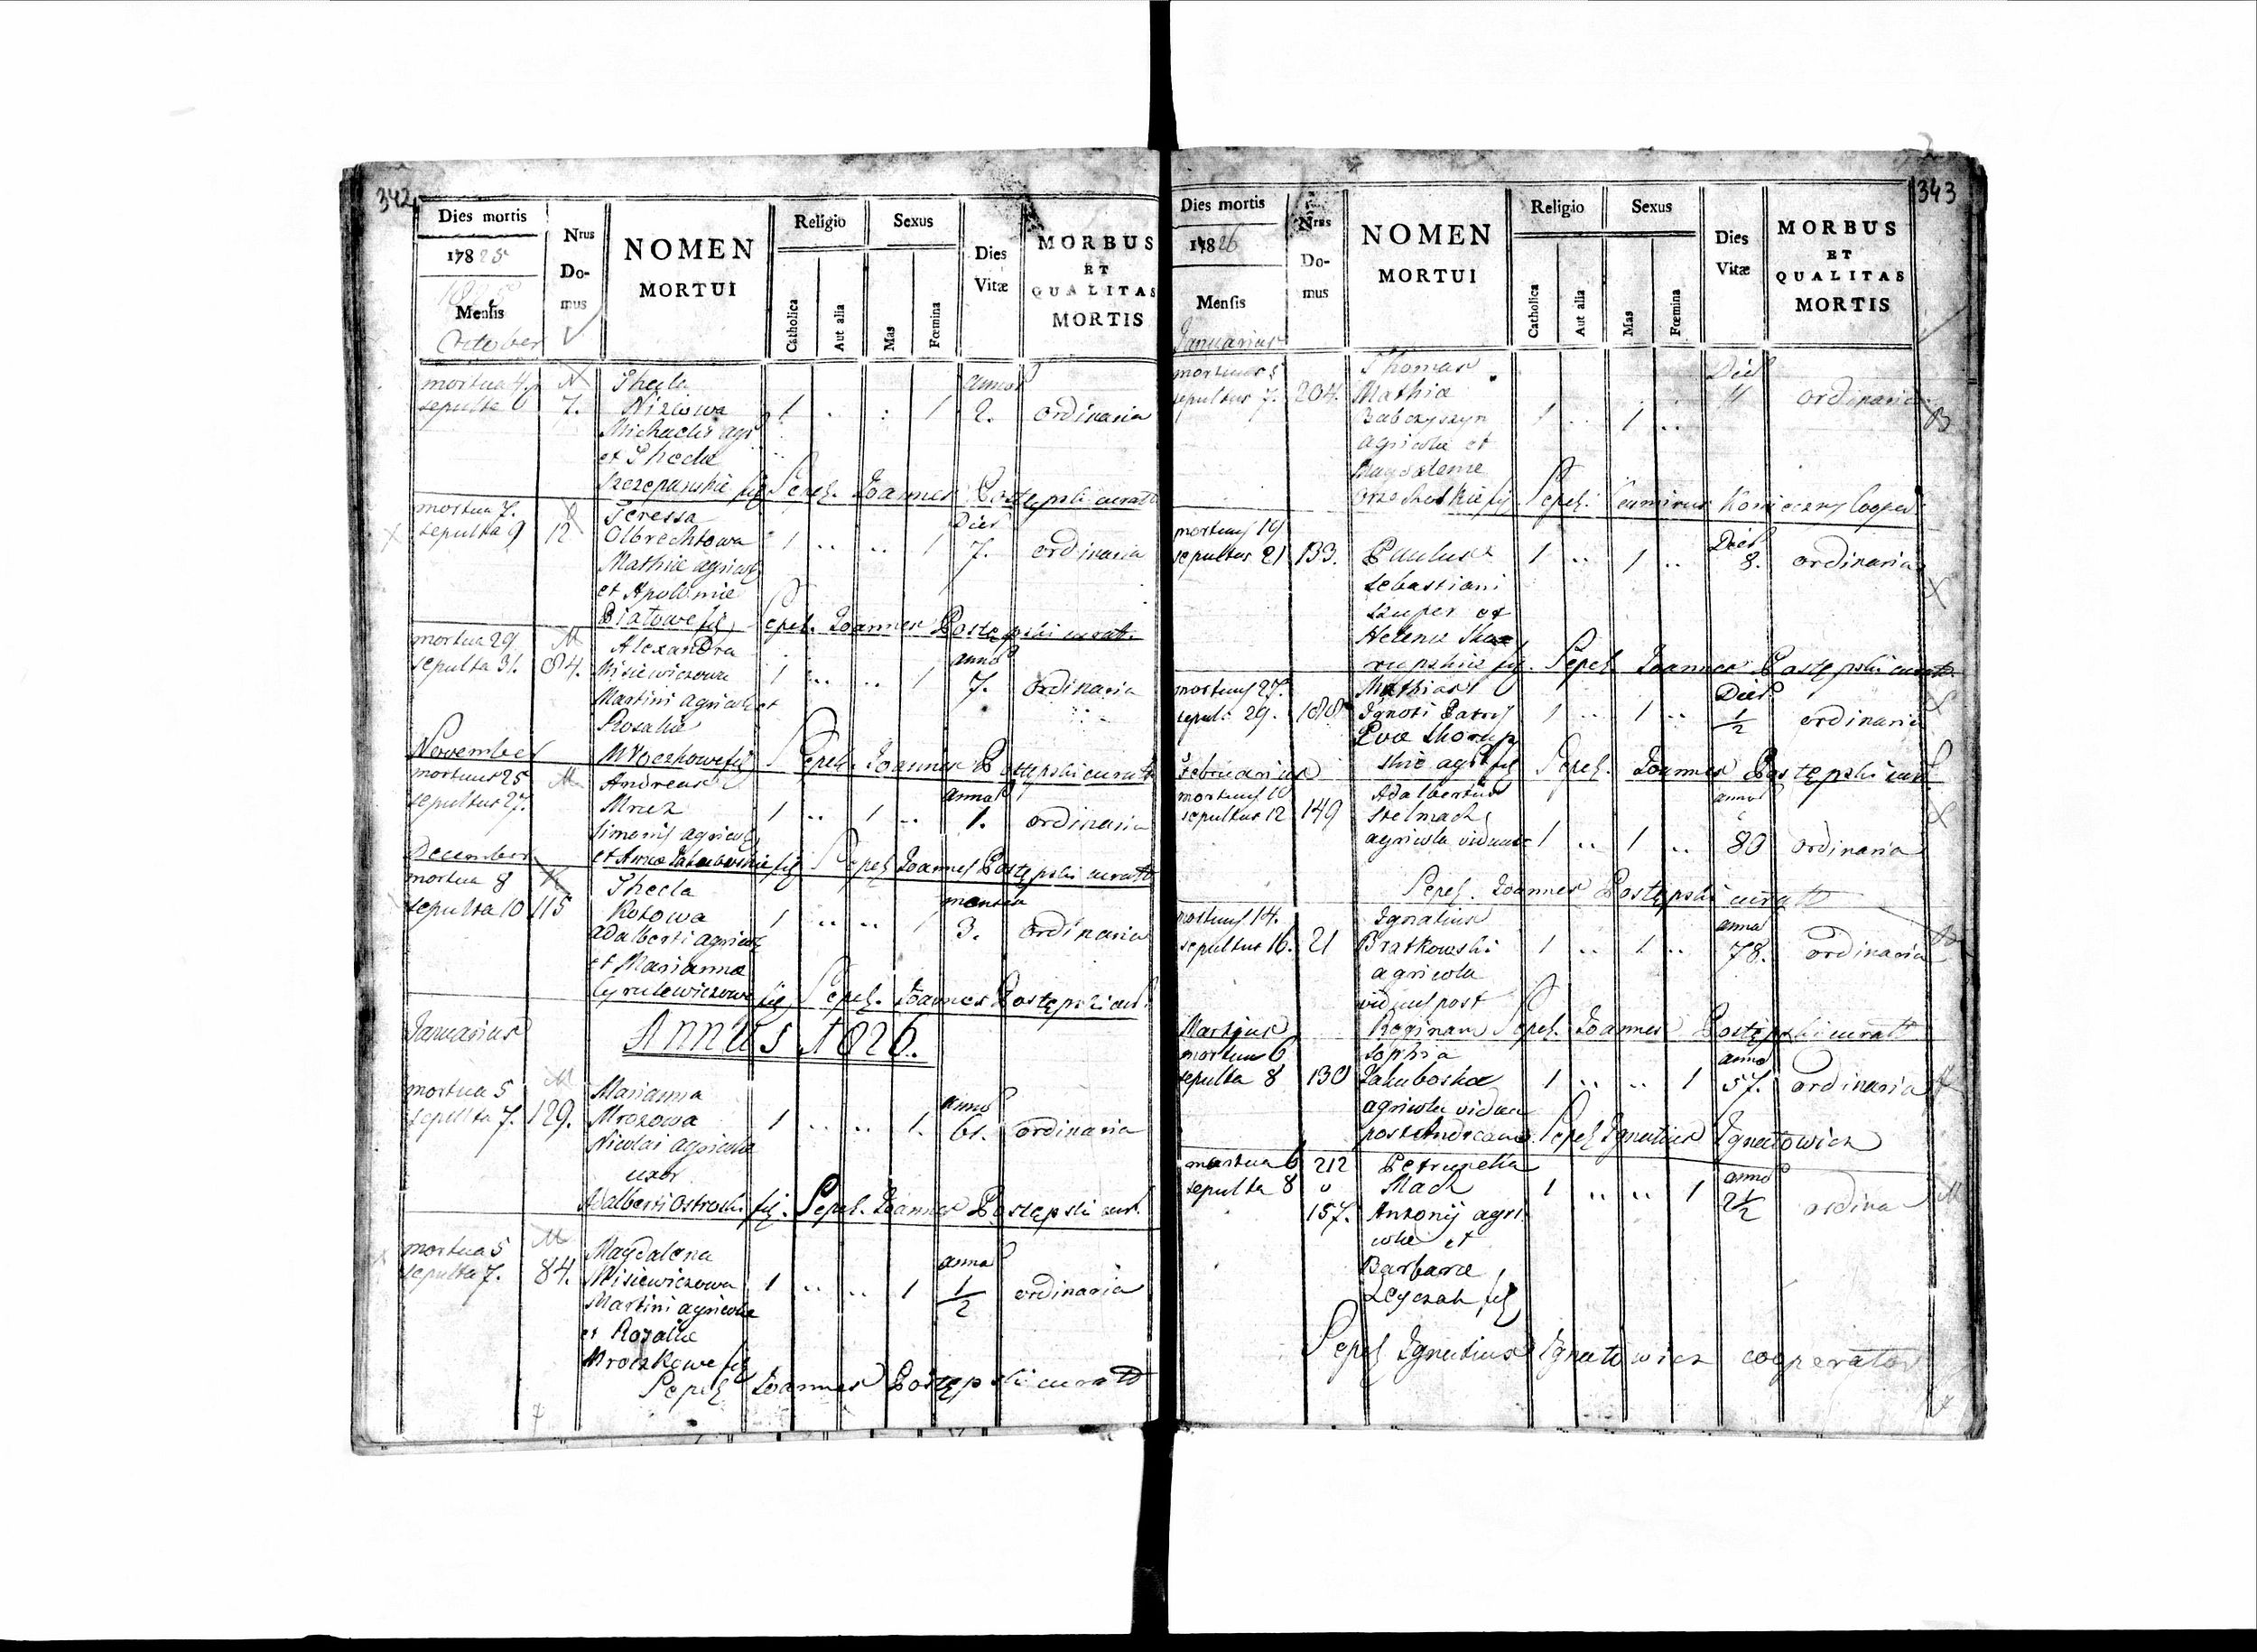 342
Dies mortis
Nrus
Do-
mus
NOMEN
MORTUI
Religio
Sexus
Dies
Vitæ
MORBUS
ET
QUALITAS
MORTIS
17825
Catholica
Aut alia
Mas
Fœmina
Mensis
October
mortua 4. Thecla anno
sepulta 6 7. Niziowa 1 1 2. ordinaria
Michaelis agr
et Thecla
Szczepanskie fil Sepel. Joannes Postępski curato
mortua 7. Teressa Dies
sepulta 9 12 Olbrechtowa 1 .. .. 1 7. ordinaria
Mathiæ agricol
et Apolonie
Białowe fil Sepel. Joannes Postępski curat.
mortua 29 M Alexandra anno
sepulta 31. 84. Misiewiczowa 1 .. .. 1 7. ordinaria
Martini agricolæ et
Rosalia
November Mroczkowe fil Sepel. Joannes Postępski curato
mortuus 25 M Andreas anno
sepultus 27. Mruz 1 .. 1 .. 1. ordinaria
Simonis agricol
December et Annæ Jakubowskie fil Sepel Joannes Postępski curato
mortua 8 K Thecla menses
sepulta 10 115 Kotowa 1 .. .. 1 3. ordinaria
Adalberti agricol
et Marianna
Cyrulewiczowe fil Sepel. Joannes Postępski cur.
Januarius Annus 1826.
mortua 5 M Marianna anno
sepulta 7. 129. Mrozowa 1 .. .. 1. 61. ordinaria
Nicolai agricolæ
uxor
Adalberti Ostroski fil. Sepel. Joannes Postępski cur.
mortua 5 M Magdalena anno
sepulta 7. 84. Misiewiczowa 1 .. .. 1 1/2 ordinaria
Martini agricolæ
et Rozaliæ
Mroczkowe fil
Sepel Joannes Postępski curato
343
Dies mortis
Nrus
Do-
mus
NOMEN
MORTUI
Religio
Sexus
Dies
Vitæ
MORBUS
ET
QUALITAS
MORTIS
17826
Catholica
Aut alia
Mas
Fœmina
Mensis
Januarius
mortuus 5 Thomas Dies
sepultus 7. 204. Mathiæ 11 ordinaria
Babczyszyn 1 .. 1 .. B
agricolæ et
Magdalenæ
fil Sepel. Konieczny Cooper
mortuus 19
sepultus 21 133. Paulus 1 .. 1 .. Dies 8. ordinaria
Sebastiani
Szuper et
Helenæ Ska
rupskie fil. Sepel. Joannes Postępski curato
mortuus 27. Mathias Dies
sepul. 29. 188 Ignoti Patris 1 .. 1 .. 1/2 ordinaria
Evæ Skorup
Februarius skie agr fil Sepel. Joannes Postępski curat.
mortuus 10 Adalbertus anno
sepultus 12 149 Stelmach
agricola viduus 1 .. 1 .. 80 ordinaria
Sepel. Joannes Postępski curato
mortuus 14. Ignatius anno
sepultus 16. 21 Bratkowski 1 .. 1 .. 78. ordinaria B
agricola
viduus post
Martius Reginam Sepel. Joannes Postępski curato
mortua 6 Sophia anno
sepulta 8 130 Jakuboska 1 .. .. 1 57. ordinaria
agricola vidua
post Andream Sepel Ignatius Ignatowicz
mortua 6 212 Petrunella anno
sepulta 8 Mach 1 .. .. 1 2 1/2 ordina M
157. Antonij agri
colæ et
Barbaræ
Leyczak fil
Sepel Ignatius Ignatowicz cooperator